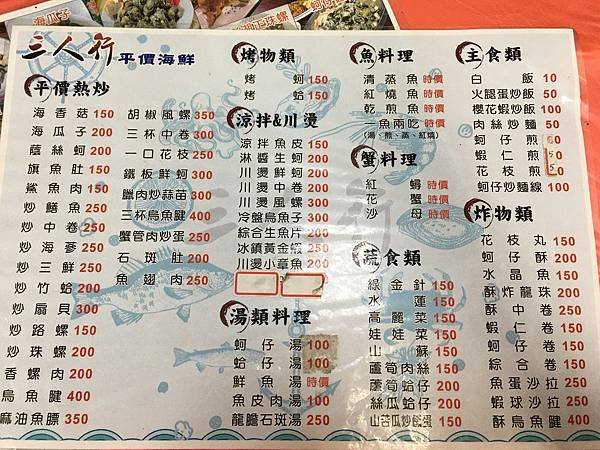 三人行 平價海鮮
平價熱炒
海香菇 150
海瓜子 200
蔭絲蚵 200
旗魚肚 150
鯊魚肉 150
炒鱔魚 250
炒中卷 250
炒海蔘 250
炒三鮮 250
炒竹蛤 200
炒扇貝 300
炒路螺 150
炒珠螺 200
香螺肉 200
烏魚腱 400
麻油魚膘 350
胡椒風螺 350
三杯中卷 300
一口花枝 250
鐵板鮮蚵 300
臘肉炒蒜苗 300
三杯烏魚腱 400
蟹管肉炒蛋 250
石斑肚 200
魚翅肉 250
烤物類
烤蚵 150
烤蛤 150
涼拌&川燙
涼拌魚皮 150
淋醬生蚵 200
川燙鮮蚵 200
川燙中卷 200
川燙風螺 300
冷盤烏魚子 300
綜合生魚片 200
冰鎮黃金蝦 250
川燙小章魚 200
湯類料理
蚵仔湯 100
蛤仔湯 100
鮮魚湯 時價
魚皮肉湯 100
龍膽石斑湯 250
魚料理
清蒸魚 時價
紅燒魚 時價
乾煎魚 時價
一魚兩吃 時價
(湯、煎、蒸、紅燒)
蟹料理
紅蟳 時價
花蟹 時價
沙母 時價
蔬食類
綠金針 150
水蓮 150
高麗菜 150
娃娃菜 150
山蘇 150
蘆筍肉絲 150
蘆筍蛤仔 200
絲瓜蛤仔 200
山苦瓜炒鹹蛋 150
主食類
白飯 10
火腿蛋炒飯 50
櫻花蝦炒飯 100
肉絲炒麵
蚵仔煎
蝦仁煎
花枝煎
蚵仔炒麵線 100
炸物類
花枝丸 150
蚵仔酥 200
水晶魚 150
酥炸龍珠 200
酥中卷 250
蝦仁卷 150
蚵仔卷 150
綜合卷 150
魚蛋沙拉 250
蝦球沙拉 250
酥烏魚腱 400
三人行